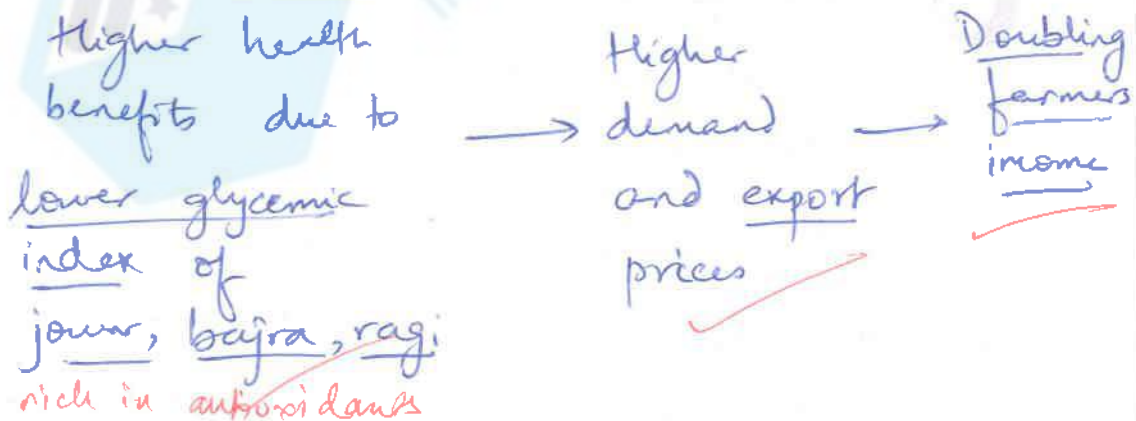 Higher health
benefits due to
lower glycemic
index of
jowar, bajra, ragi
rich in antioxidants
→ Higher
demand
and export
prices
→ Doubling
farmers
income